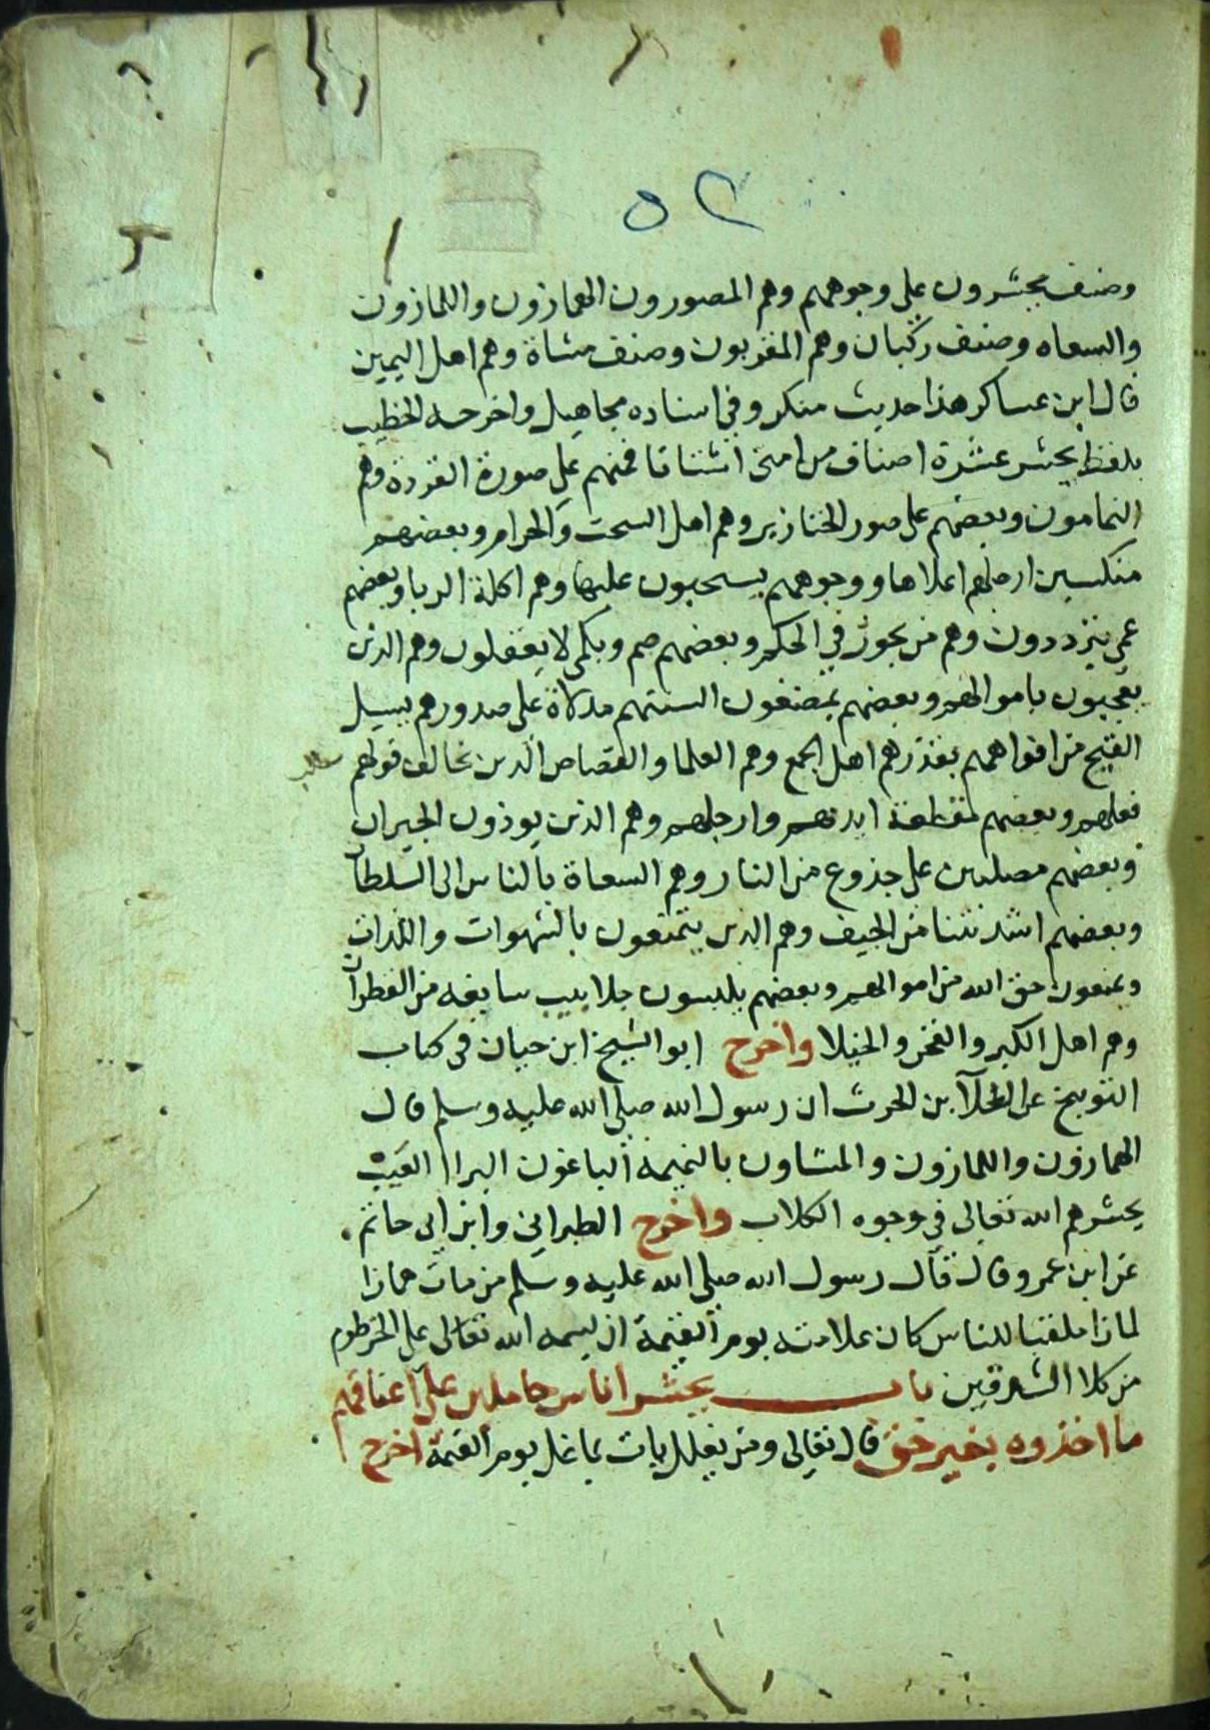 ٥٢
وصنف يحشرون على وجوههم وهم المصورون الهمازون واللمازون
والسعاه وصنف ركبان وهم المقربون وصنف مشاة وهم اهل اليمين
قال ابن عساكر هذا حديث منكر وفي اسناده مجاهيل واخرجه الخطيب
بلفظ يحشر عشرة اصناف من امتي اشتاتا فمنهم على صورة القردة وهم
النمامون وبعضهم على صور الخنازير وهم اهل السحت والحرام وبعضهم
منكسين ارجلهم اعلاها ووجوههم يسحبون عليها وهم اكلة الربا وبعضهم
عمي يترددون وهم من يجور في الحكم وبعضهم صم وبكم لا يعقلون وهم الذين
يعجبون باموالهم وبعضهم يمضغون السنتهم مدلاة على صدورهم يسيل
القيح من افواههم يقذرهم اهل الجمع وهم العلما والقصاص الذين تخالف قولهم
فعلهم وبعضهم مقطعة ايديهم وارجلهم وهم الذين يوذون الجيران
وبعضهم مصلبين على جذوع من النار وهم السعاة بالناس الى السلطان
وبعضهم اشد نتنا من الجيف وهم الذين يتمتعون بالشهوات واللذات
ويمنعون حق الله من اموالهم وبعضهم يلبسون جلابيب سابغه من القطران
وهم اهل الكبر والفخر والخيلا واخرج ابو الشيخ ابن حيان في كتاب
التوبيخ عن العلآ بن الحرث ان رسول الله صلى الله عليه وسلم قال
الهمازون واللمازون والمشاون بالنميمة الباغون البراا العيب
يحشرهم الله تعالى في وجوه الكلاب واخرج الطبراني وابن ابي حاتم
عن ابن عمرو قال قال رسول الله صلى الله عليه وسلم من مات همازا
لمازا ملقبا للناس كان علامته يوم القيمة ان يسمه الله تعالى على الخرطوم
من كلا الشدقين باب يحشر اناس حاملين على اعناقهم
ما اخذوه بغير حق قال تعالى ومن يغلل يات بما غل يوم القيمة اخرج